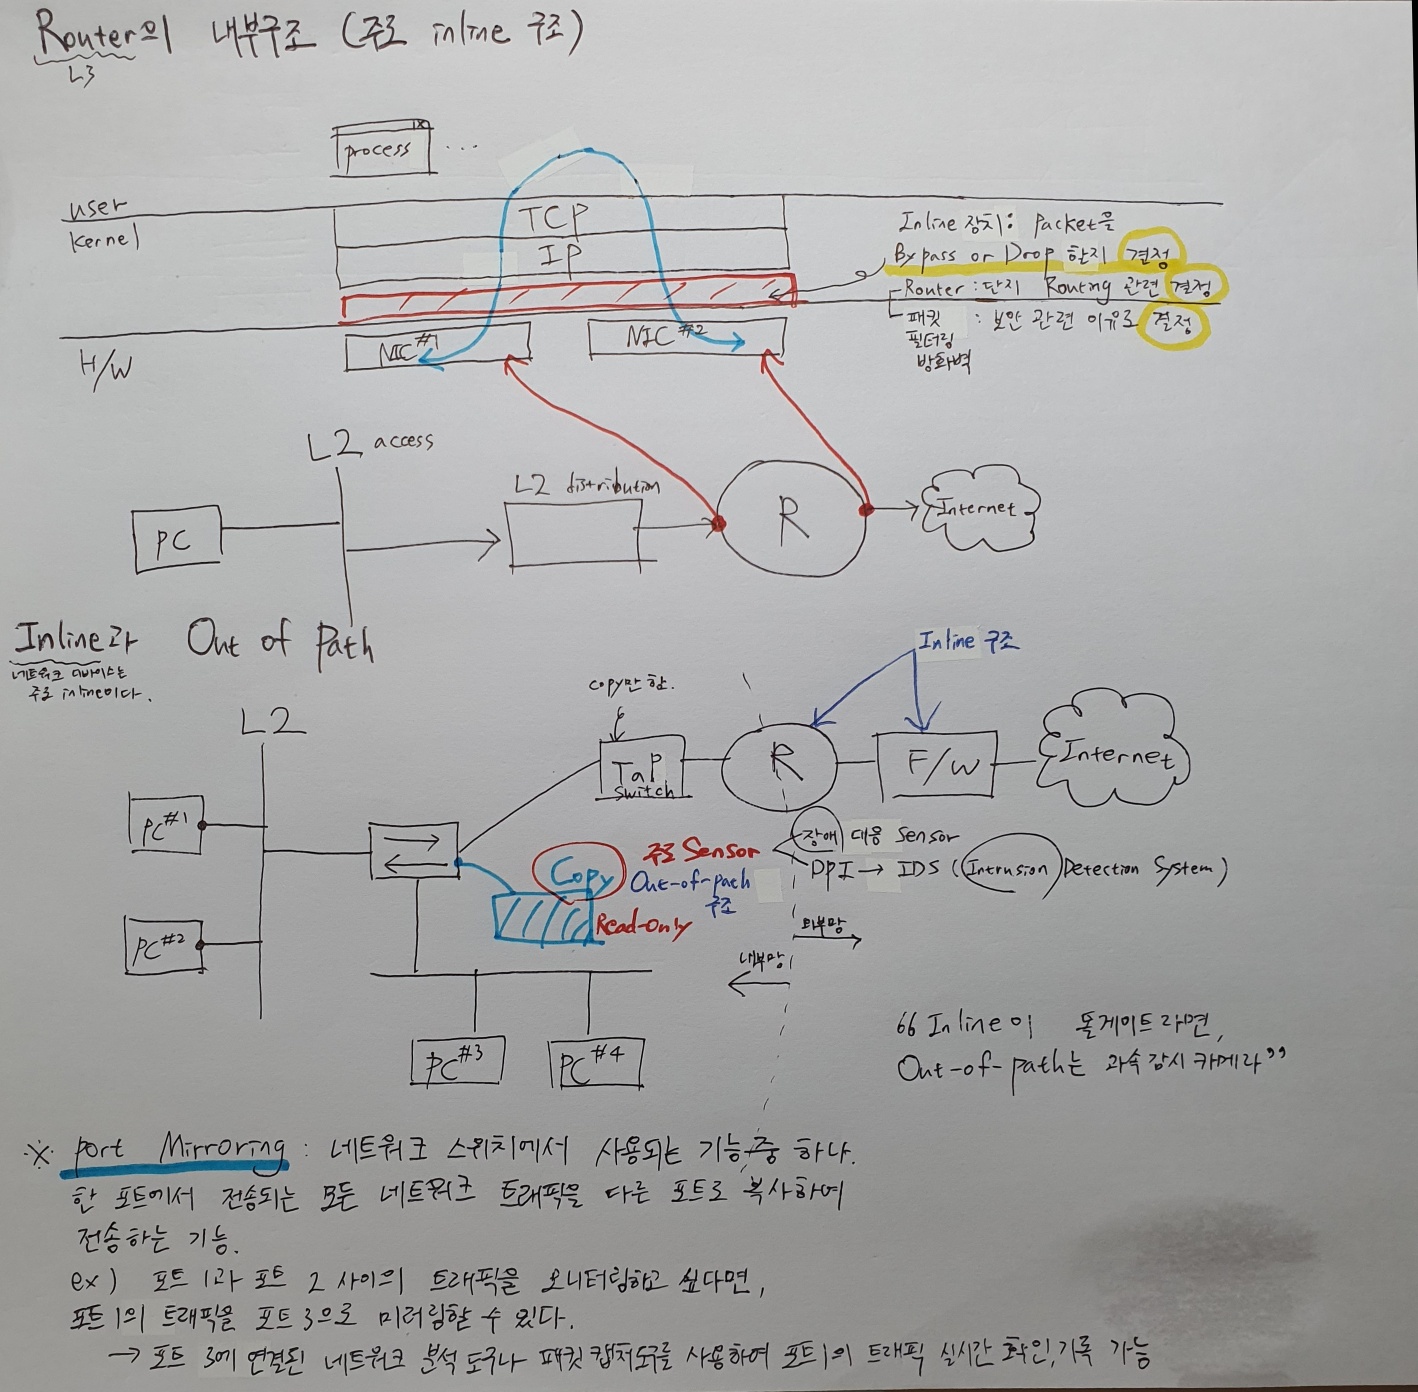 Router의 내부구조 (주로 inline 구조)
L3
process ...
user
kernel
TCP
IP
Inline 장치: Packet을
Bypass or Drop 할지 결정
Router : 단지 Routing 관련 결정
패킷 : 보안 관련 이유로 결정
필터링
방화벽
H/W
NIC#1
NIC#2
L2 access
L2 distribution
PC
R
Internet
Inline과 Out of Path
네트워크 디바이스는
주로 inline이다.
Inline 구조
copy만 함.
L2
Tap
Switch
R
F/W
Internet
PC#1
PC#2
Copy
주로 Sensor
Out-of-path
구조
Read-only
장애 대응 Sensor
DPI → IDS (Intrusion Detection System)
외부망
내부망
PC#3
PC#4
“Inline이 톨게이트라면,
Out-of-path는 과속감시 카메라”
※ port Mirroring : 네트워크 스위치에서 사용되는 기능 중 하나.
한 포트에서 전송되는 모든 네트워크 트래픽을 다른 포트로 복사하여
전송하는 기능.
ex) 포트 1과 포트 2 사이의 트래픽을 모니터링하고 싶다면,
포트1의 트래픽을 포트3으로 미러링할 수 있다.
→ 포트 3에 연결된 네트워크 분석 도구나 패킷 캡처도구를 사용하여 포트1의 트래픽 실시간 확인, 기록 가능